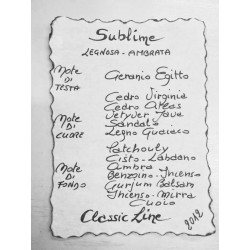 Sublime
LEGNOSA - AMBRATA
Note
DI
TESTA
Geranio Egitto
Note
DI
CUORE
Cedro Virginia
Cedro Atlas
Vetyver Java
Sandalo
Legno Guaiaco
Note
DI
FONDO
Patchouly
Cisto-Labdano
Ambra
Benzoino-Incenso
Gurjum Balsam
Incenso-Mirra
Cuoio
Classic Line
2012